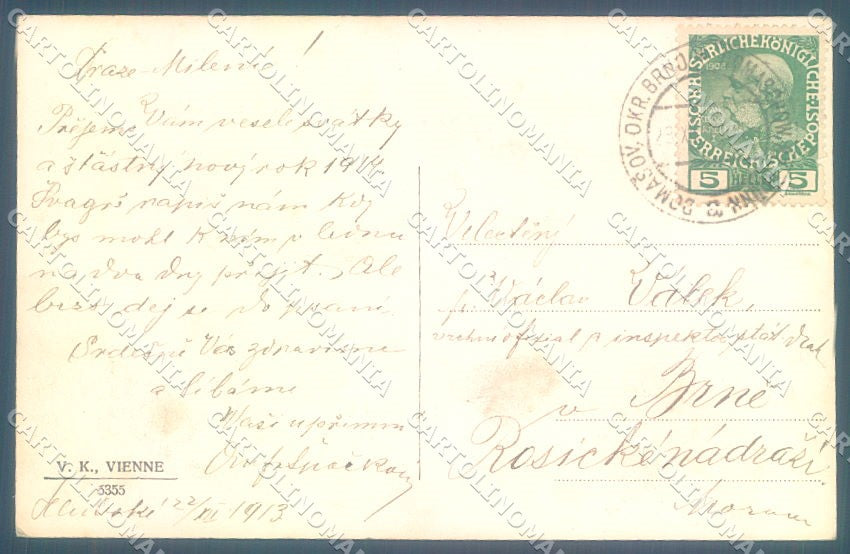 Draze Milení!
Přejeme Vám veselé svátky
a šťastný nový rok 1914
Švagr napiš nám kdy
bys mohl k nám v lednu
na dva dny přijít. Ale
brzo dej se do psaní.
Srdečně Vás zdravíme
a líbáme
Vaši upřímní
V. K., VIENNE
5355
22/XII 1913
Velectěný
p. Václav Válek,
vrchní oficial a inspektor stát. drah
v Brně
Rosické nádraží.
Morava
KAISERLICHE KÖNIGLICHE ÖSTERREICHISCHE POST
1908
5 HELLER 5
DOMAŠOV, OKR. BRNO
CARTOLINOMANIA